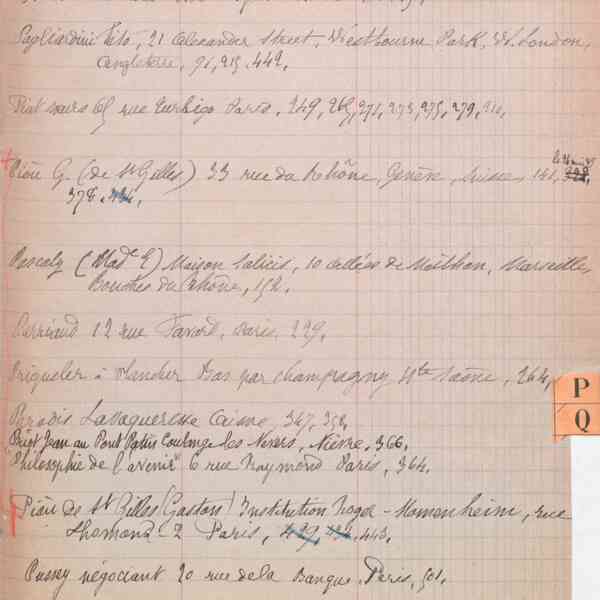 Pagliardini Tito, 21 Alexander Street, Westbourne Park, W. London,
Angleterre, 71, 215, 442,
Piat soeurs 65 rue Turbigo Paris, 249, 269, 271, 273, 275, 279,
Piou G. (de St Gilles) 33 rue du Rhône, Genève, Suisse, 161,
378,
Pascaly (Mad E) Maison Salicis, 10 allées de Meilhan, Marseille,
Bouches du Rhône, 192,
12 rue Favard, Paris, 229,
Priqueler à Plancher Bas par Champagney Hte Saône, 264,
Paradis Lavaqueresse Aisne 347, 352,
Priet Jean au Pont Patin Coulange les Nevers, Nièvre, 366,
"Philosophie de l'avenir" 6 rue Raymond Paris, 364,
Piou de St Gilles (Gaston) Institution Roger-Momenheim, rue
Lhomond 2 Paris, 443,
Passey négociant 20 rue de la Banque, Paris, 501,
P
Q